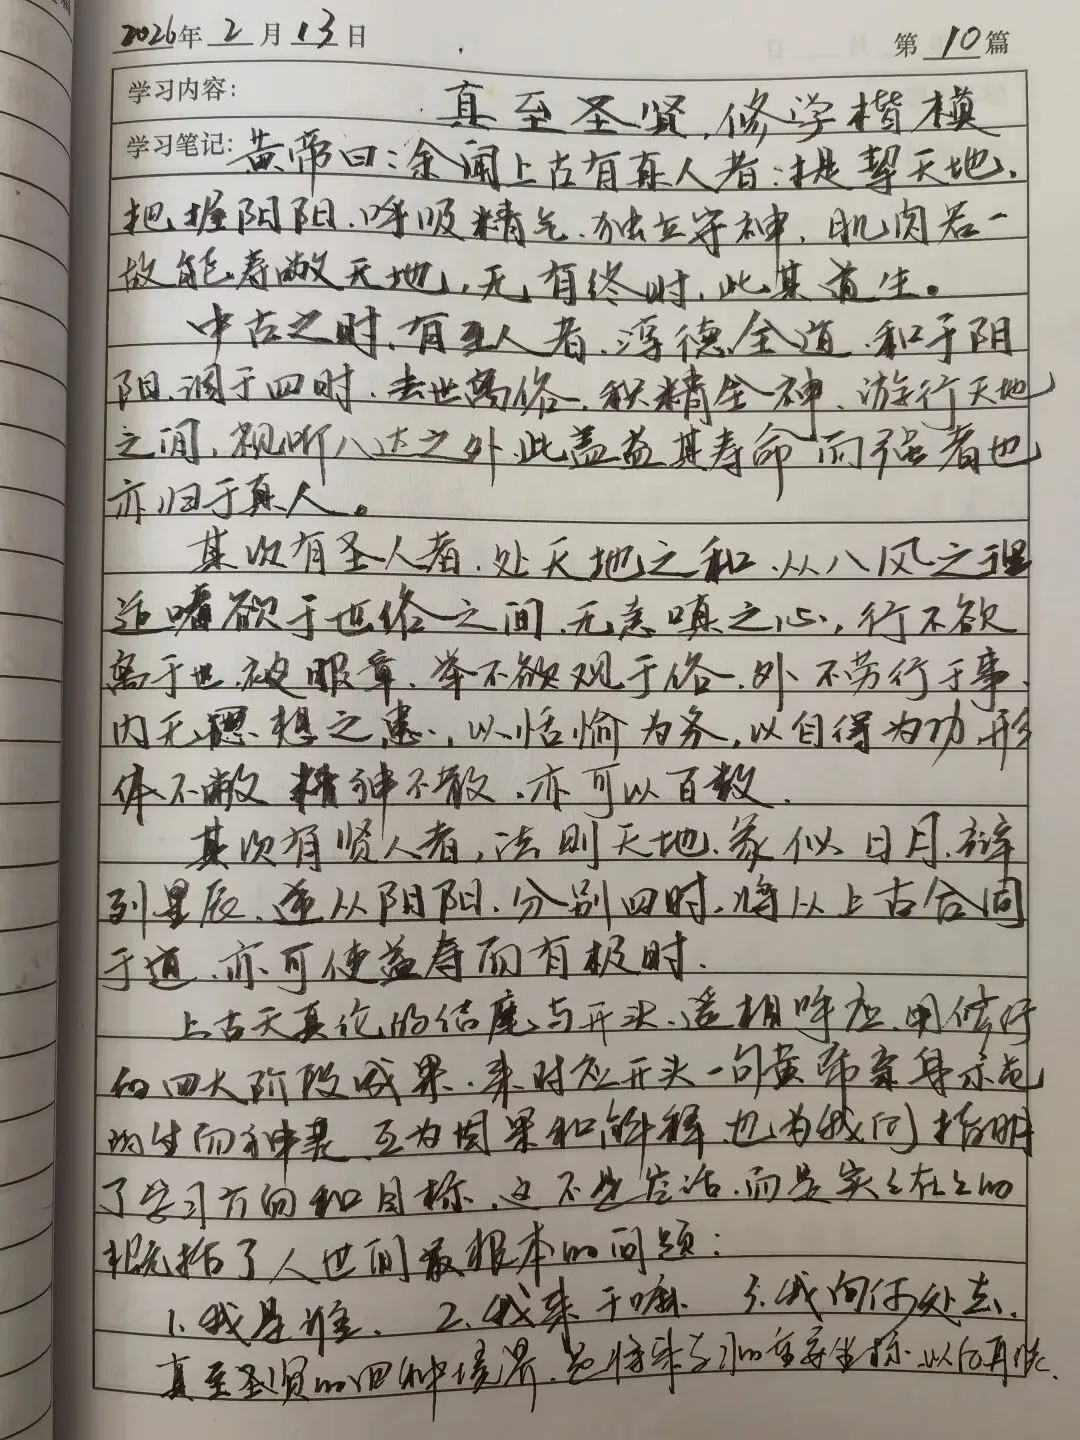 2026年 2 月 13 日
第 10 篇
学习内容: 真至圣贤,修学楷模
学习笔记: 黄帝曰:余闻上古有真人者:提挈天地、
把握阴阳、呼吸精气、独立守神、肌肉若一
故能寿敝天地,无有终时,此其道生。
中古之时,有至人者、淳德全道、和于阴
阳、调于四时、去世离俗、积精全神、游行天地
之间,视听八达之外、此盖益其寿命而强者也
亦归于真人。
其次有圣人者、处天地之和、从八风之理
适嗜欲于世俗之间、无恚嗔之心,行不欲
离于世、被服章、举不欲观于俗、外不劳行于事、
内无思想之患,以恬愉为务,以自得为功,形
体不敝 精神不散、亦可以百数、
其次有贤人者,法则天地、象似日月、辩
列星辰、逆从阴阳、分别四时,将从上古合同
于道、亦可使益寿而有极时.
上古天真论的结尾与开头、遥相呼应、用修行
的四大阶段成果、来对应开头一句黄帝亲身示范
的生而神灵、互为因果和解释、也为我们指明
了学习方向和目标、这不是空话、而是实实在在的
概括了人世间最根本的问题:
1.我是谁、 2.我来干嘛 3.我向何处去、
真至圣贤的四种境界、是将来学习的重要坐标、以后再谈、